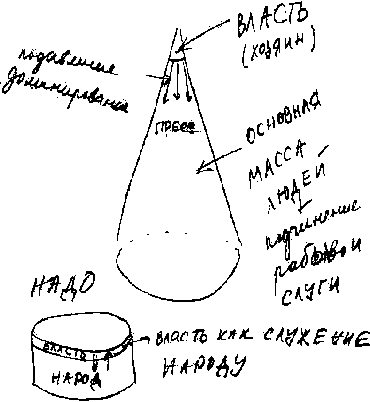 ВЛАСТЬ
(хозяин)
подавление
доминирование
ПРЕСС
ОСНОВНАЯ
МАССА
ЛЮДЕЙ
подчинение
рабы и
СЛУГИ
НАДО
ВЛАСТЬ КАК СЛУЖЕНИЕ
НАРОДУ
ВЛАСТЬ
НАРОД